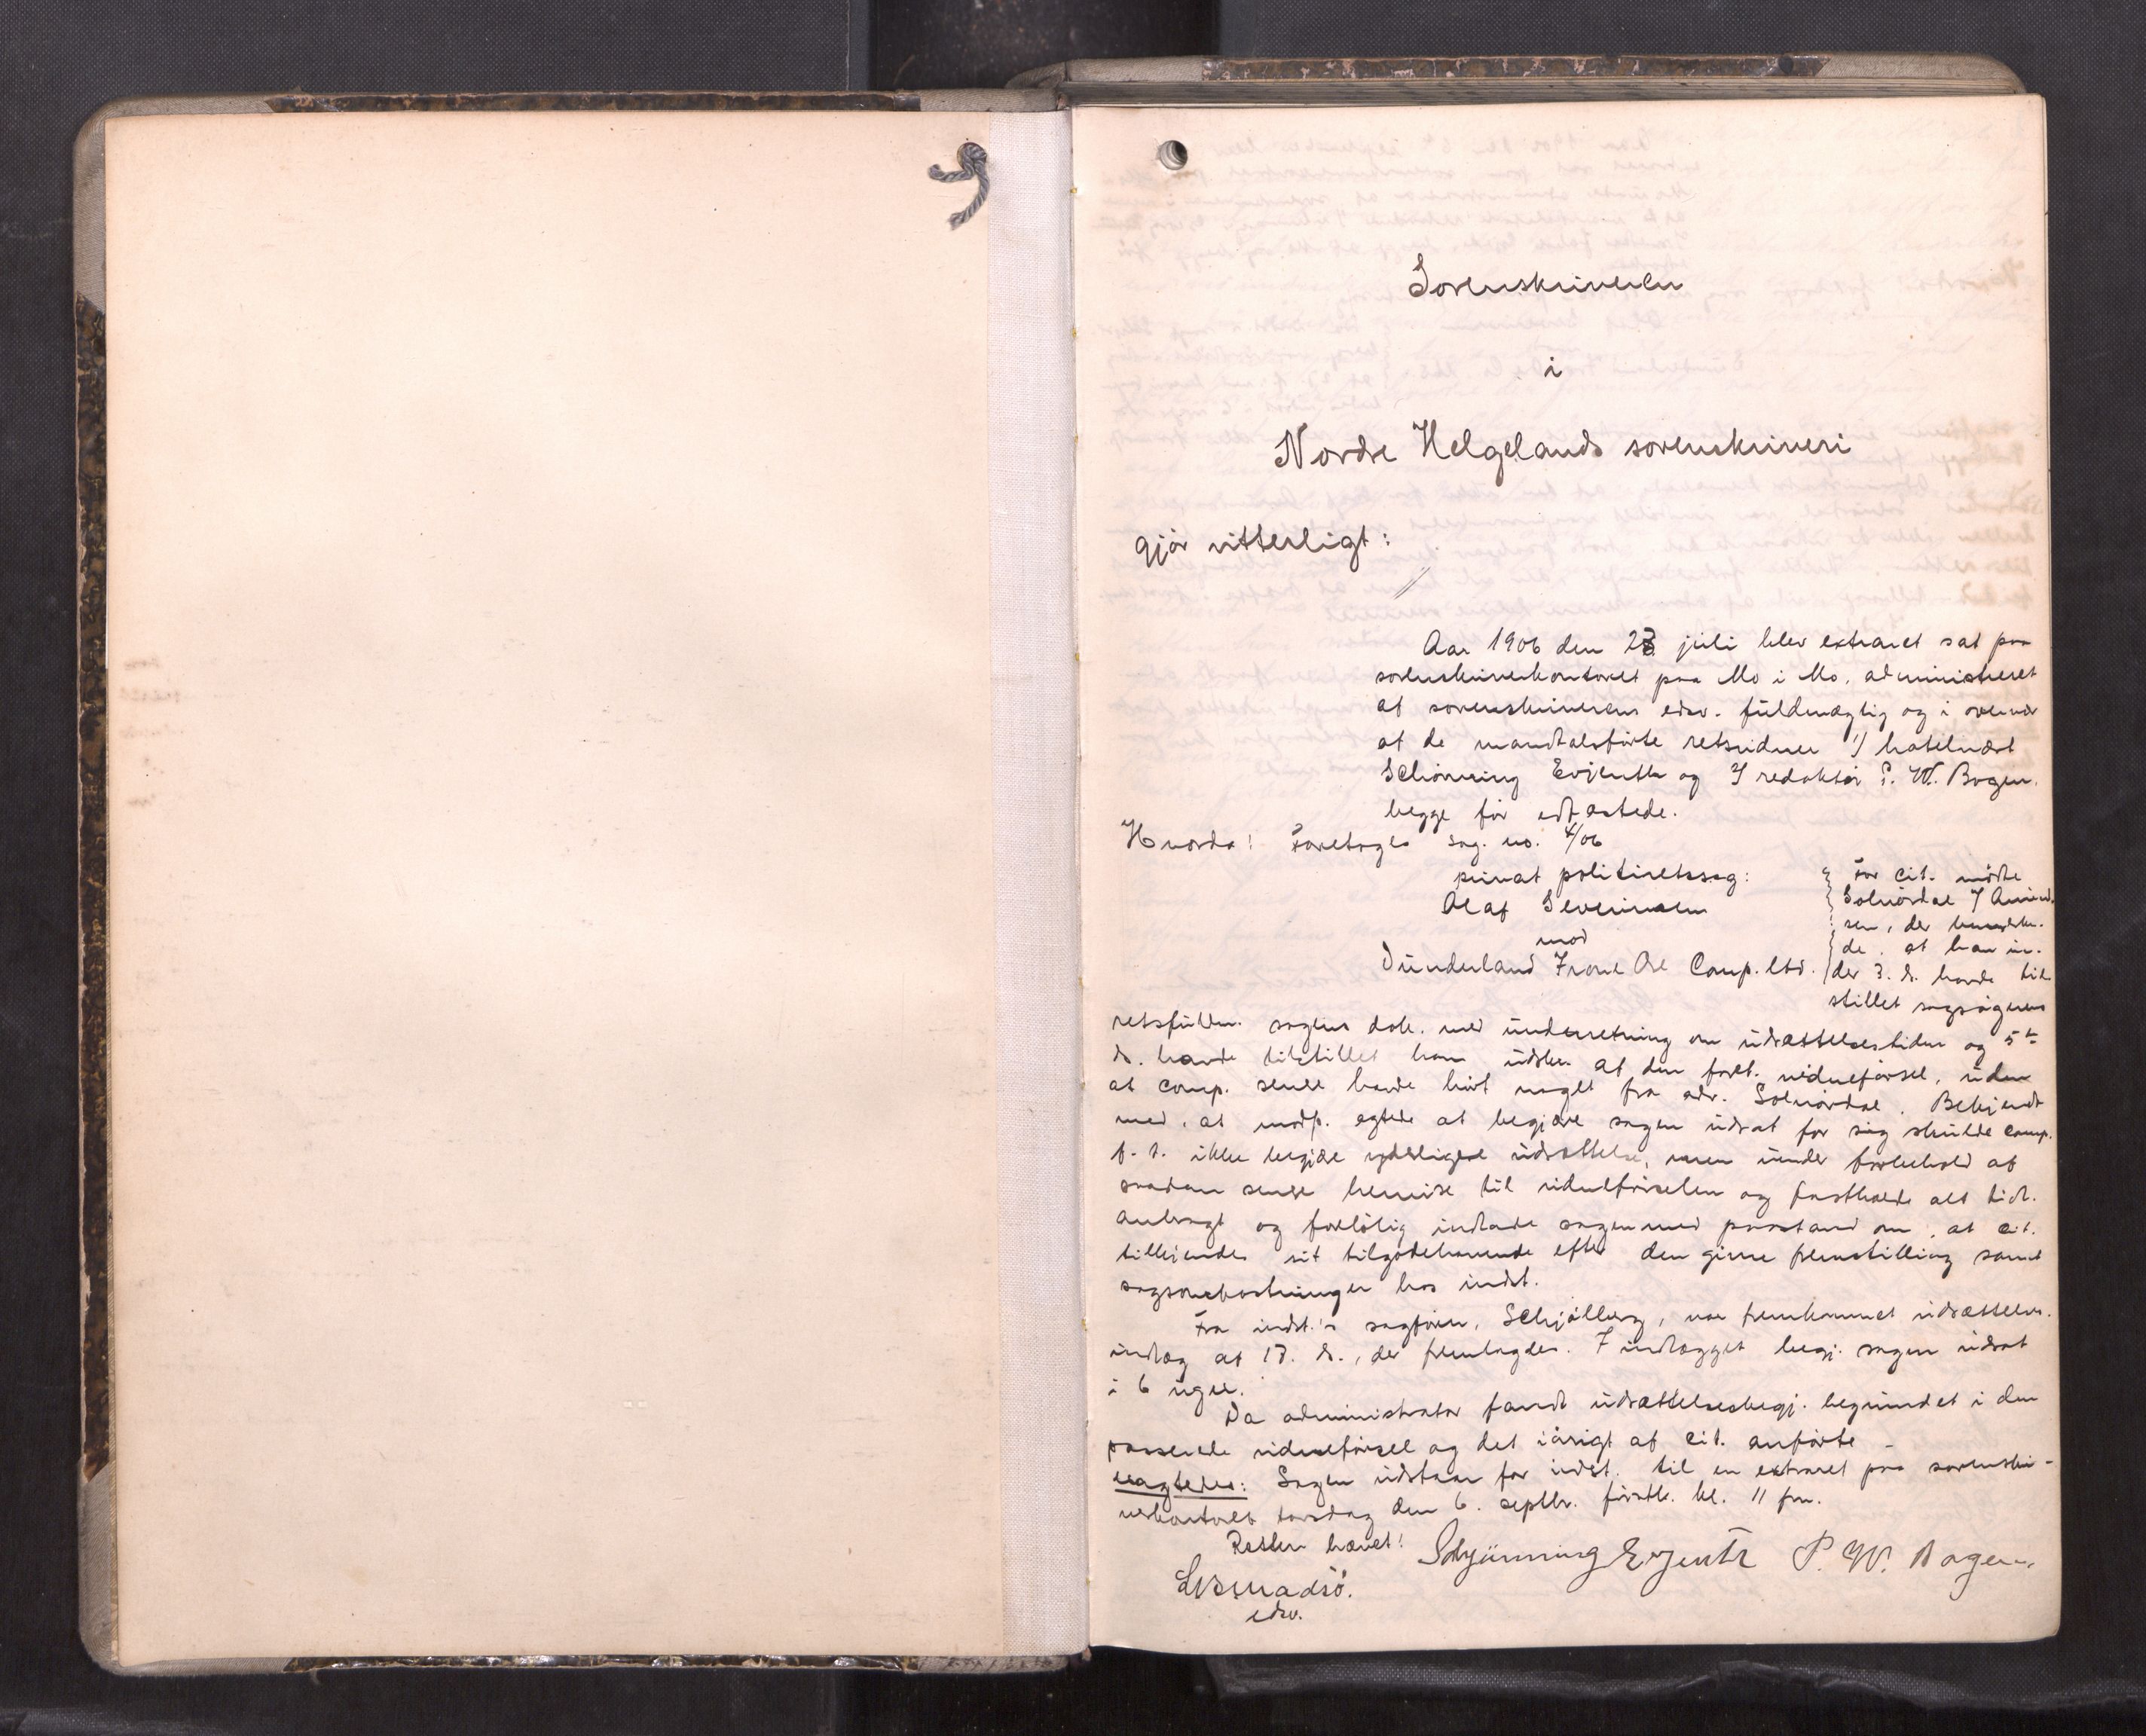 Sorenskriveren
i
Nordre Helgelands sorenskriveri
gjör vitterligt:
Aar 1906 den 23 juli blev extraret sat paa
sorenskriverkontoret paa Mo i Mo, administreret
af sorenskriverens edsv. fuldmægtig og i overvær
af de mandtalsförte retsvidner 1) hotelvært
Schönning Evjenth og 2 redaktör P. W. Bogen,
begge för edfæstede.
Hvorda: Foretages sag no. 4/06
privat politiretssag:
Olaf Severinsen
mod
Dunderland Irone Ore Comp. ltd.
For cit. mödte
Solnördal
sen, der bemærke-
de, at han un-
der 3. ds. havde til-
stillet sagsögerens
retsfuldm. sagens dok. med underretning om udsættelsestiden og 5te
ds. havde tilstillet ham udskr. af den foret. vidneförsel, uden
at comp. senere havde hört noget fra adv. Solnördal. Bekjendt
med, at modp. agtede at begjære sagen udsat for sig skulde comp.
f. t. ikke begjære yderligere udsættelse, men under forbehold af
saadan senere henvise til vidneförselen og fastholde alt tidl.
anbragt og forelöbig indlade sagen med paastand om, at cit.
tilkjendes sit tilgodehavende efter den givne fremstilling samt
sagsomkostninger hos indst.
Fra indst.'s sagförer, Schjölberg, var fremkommet udsættelses-
indlæg af 17. ds., der fremlagdes. I indlægget begj. sagen udsat
i 6 uger.
Da administrator fandt udsættelsesbegj. begrundet i den
passerede vidneförsel og det iövrigt af cit. anförte –
eragtedes: Sagen udstaar for indst. til en extraret paa sorenskri-
verkontoret torsdag den 6. septbr. förstk. kl. 11 fm.
Retten hævet!
Schjönning Evjenth P. W. Bogen.
edsv.